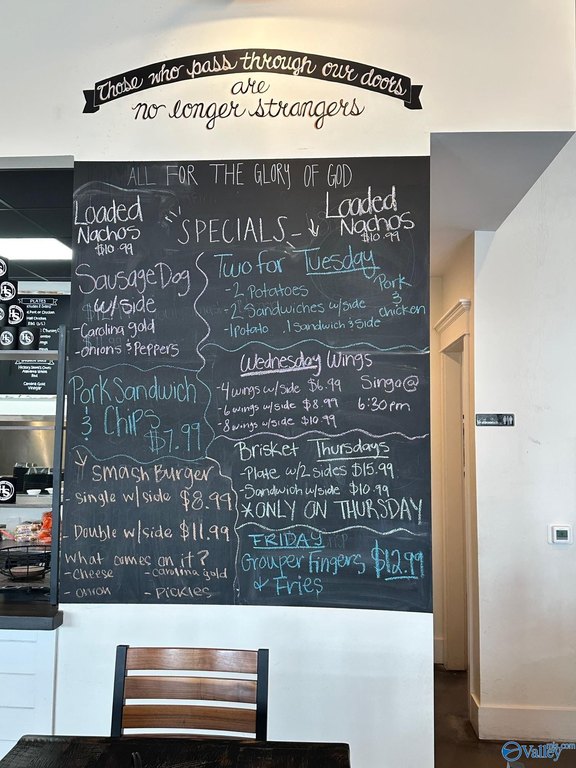 Those who pass through our doors
are
no longer strangers
ALL FOR THE GLORY OF GOD
Loaded
Nachos
$10.99
SPECIALS
Loaded
Nachos
$10.99
Sausage Dog
w/ side
-Carolina gold
-onions & Peppers
Pork Sandwich
&
Chips
$7.99
Smash Burger
- Single w/side $8.99
- Double w/side $11.99
What comes on it?
- Cheese - Carolina gold
- onion - Pickles
Two for Tuesday
-2 Potatoes
-2 Sandwiches w/side
-1 Potato 1 Sandwich & Side
Pork
&
Chicken
Wednesday Wings
-4 wings w/ side $6.99
-6 wings w/side $8.99
-8 wings w/side $10.99
Singo@
6:30pm
Brisket Thursdays
-Plate w/2 sides $15.99
-Sandwich w/side $10.99
*ONLY ON THURSDAY
FRIDAY
Grouper Fingers $12.99
& Fries
PLATES
HS
Valley